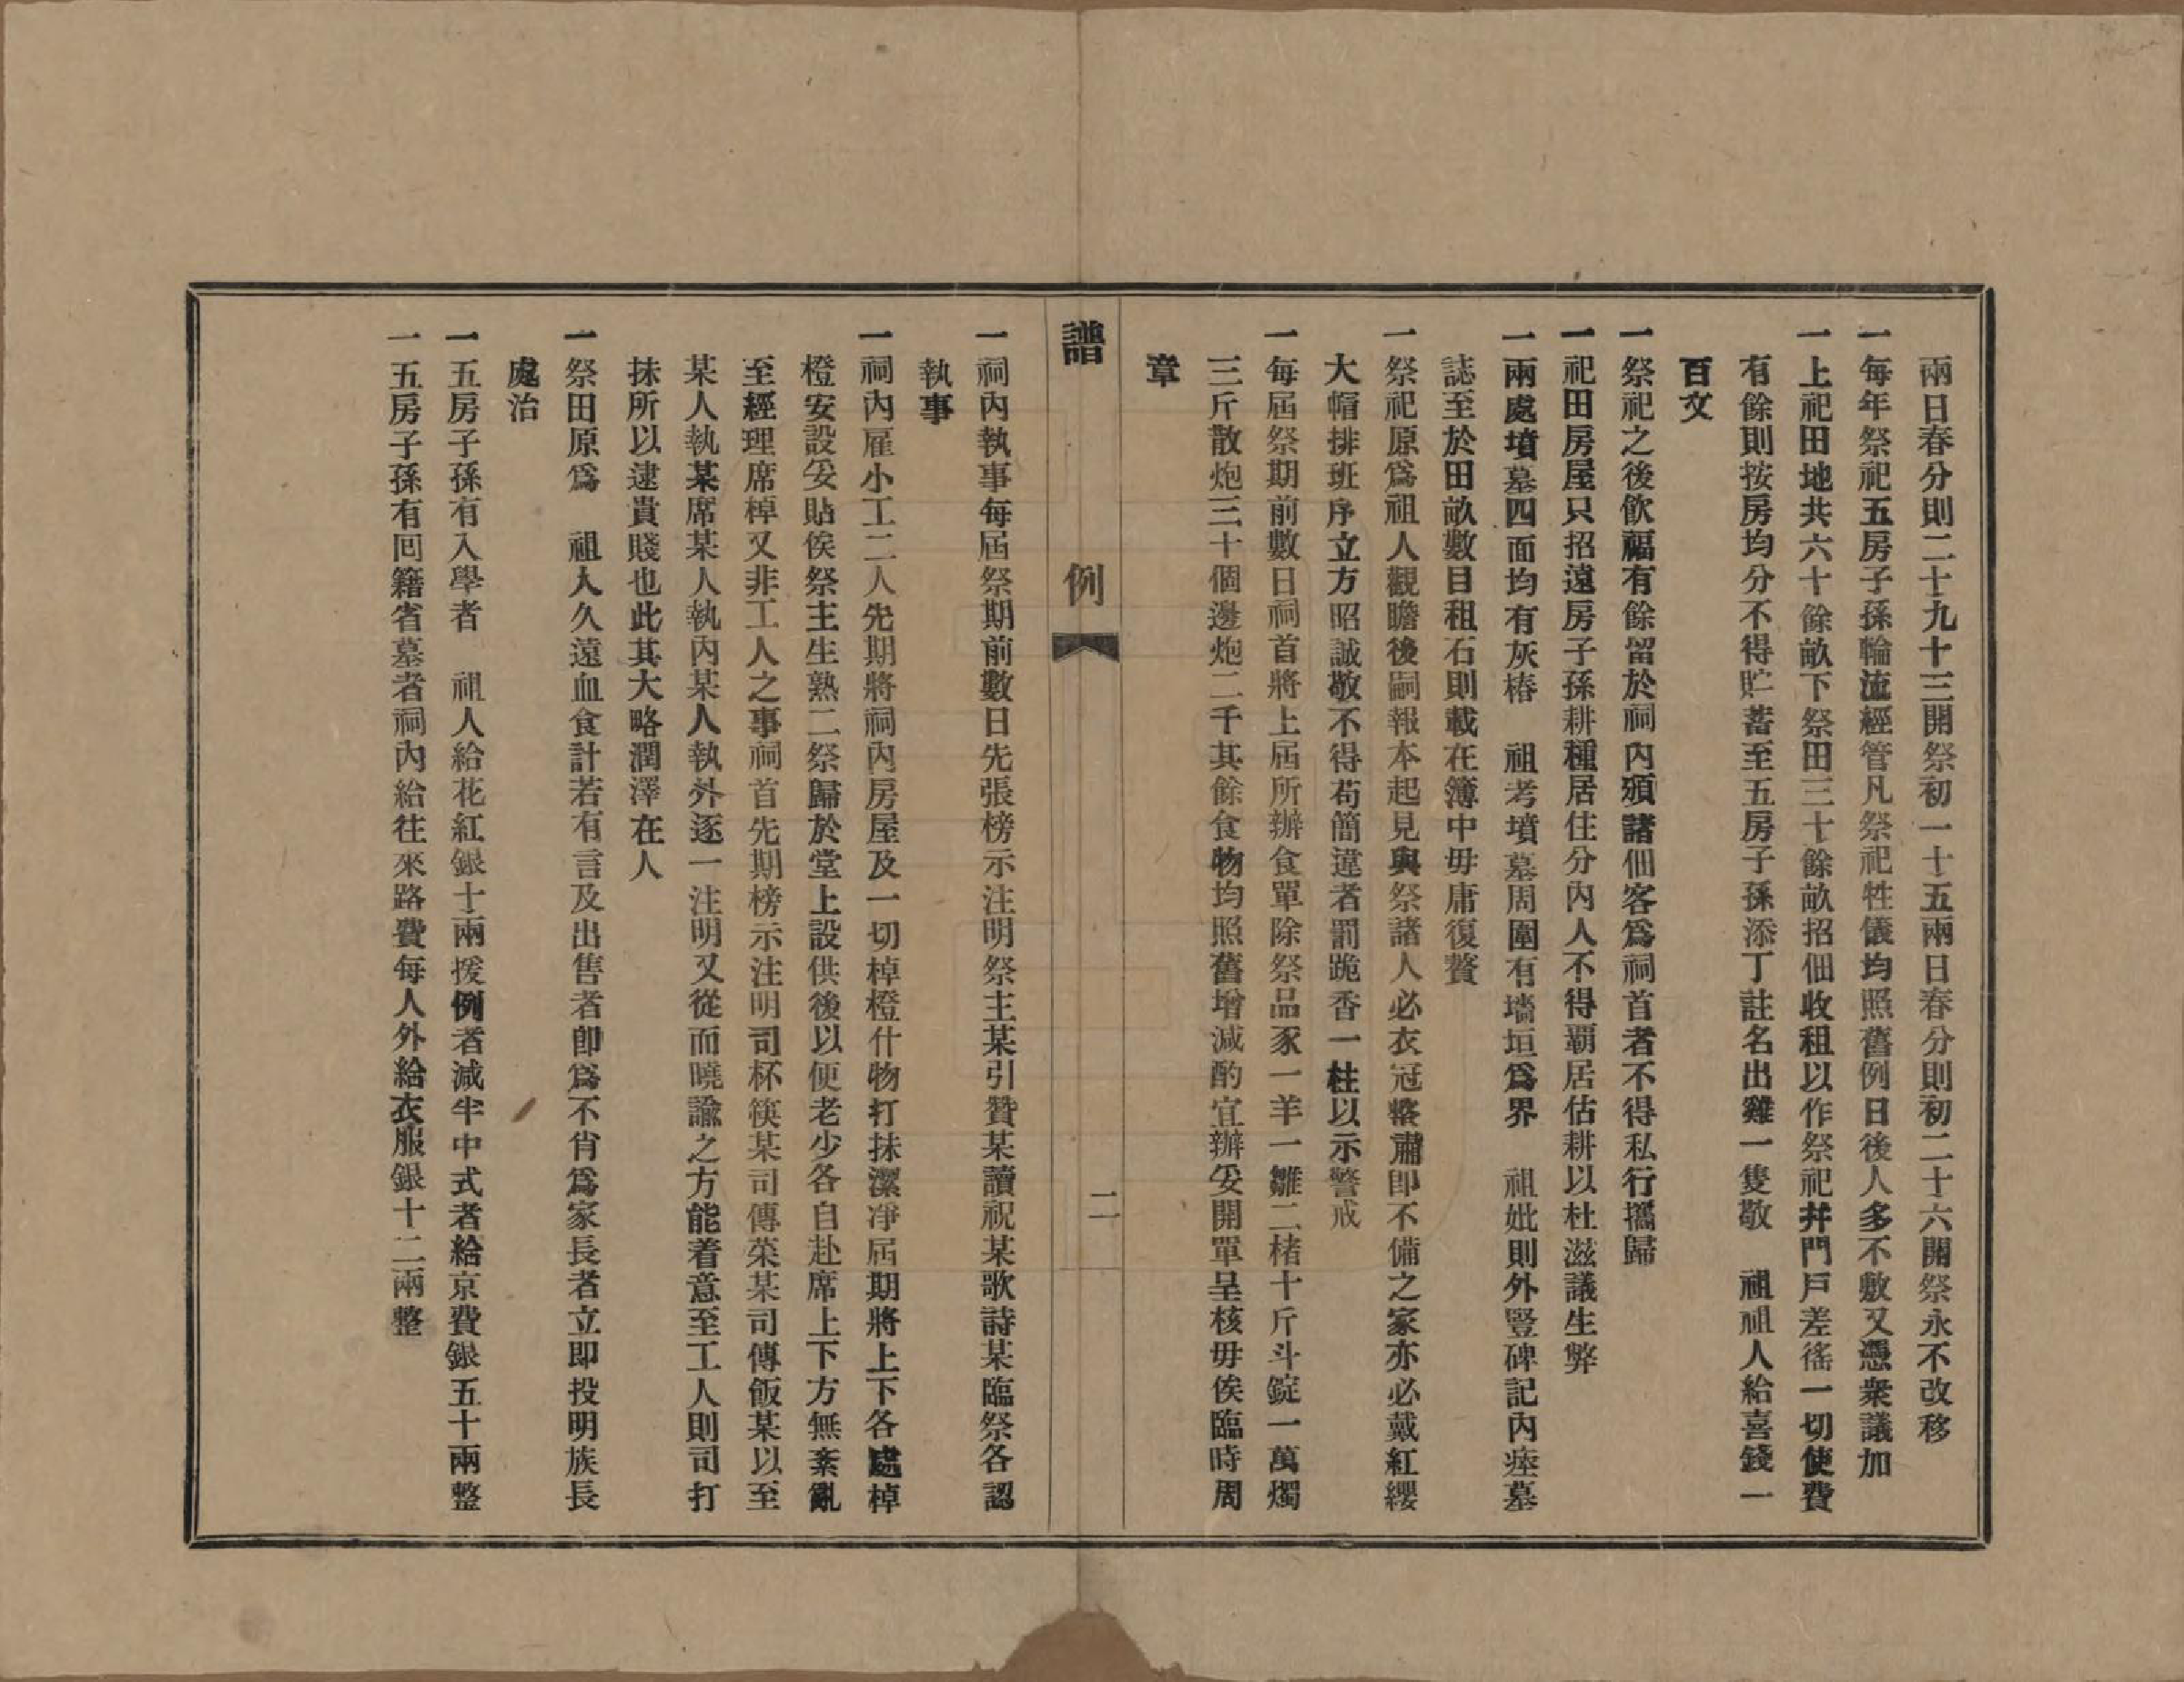 兩日春分則二十九十三開祭初一十五兩日春分則初二十六開祭永不改移
一每年祭祀五房子孫輪流經管凡祭祀牲儀均照舊例日後人多不敷又憑衆議加
一上祀田地共六十餘畝下祭田三十餘畝招佃收租以作祭祀井門戶差徭一切使費
有餘則按房均分不得貯蓄至五房子孫添丁註名出雞一隻敬　祖祖人給喜錢一
百文
一祭祀之後飲福有餘留於祠內頒諸佃客爲祠首者不得私行攜歸
一祀田房屋只招遠房子孫耕種居住分內人不得霸居估耕以杜滋議生弊
一兩處墳墓四面均有灰樁　祖考墳墓周圍有墻垣爲界　祖妣則外豎碑記內瘞墓
誌至於田畝數目租石則載在簿中毋庸復贅
一祭祀原爲祖人觀瞻後嗣報本起見與祭諸人必衣冠整肅卽不備之家亦必戴紅纓
大帽排班序立方昭誠敬不得苟簡違者罰跪香一柱以示警戒
一每屆祭期前數日祠首將上屆所辦食單除祭品豕一羊一雛二楮十斤斗錠一萬燭
三斤散炮三十個邊炮二千其餘食物均照舊增減酌宜辦妥開單呈核毋俟臨時周
章
譜　例　二
一祠內執事每屆祭期前數日先張榜示注明祭主某引贊某讀祝某歌詩某臨祭各認
執事
一祠內雇小工二人先期將祠內房屋及一切棹橙什物打抹潔凈屆期將上下各處棹
橙安設妥貼俟祭主生熟二祭歸於堂上設供後以便老少各自赴席上下方無紊亂
至經理席棹又非工人之事祠首先期榜示注明司杯筷某司傳菜某司傳飯某以至
某人執某席某人執內某人執外逐一注明又從而曉諭之方能着意至工人則司打
抹所以逮貴賤也此其大略潤澤在人
一祭田原爲　祖人久遠血食計若有言及出售者卽爲不肖爲家長者立即投明族長
處治
一五房子孫有入學者　祖人給花紅銀十兩援例者減半中式者給京費銀五十兩整
一五房子孫有回籍省墓者祠內給往來路費每人外給衣服銀十二兩整